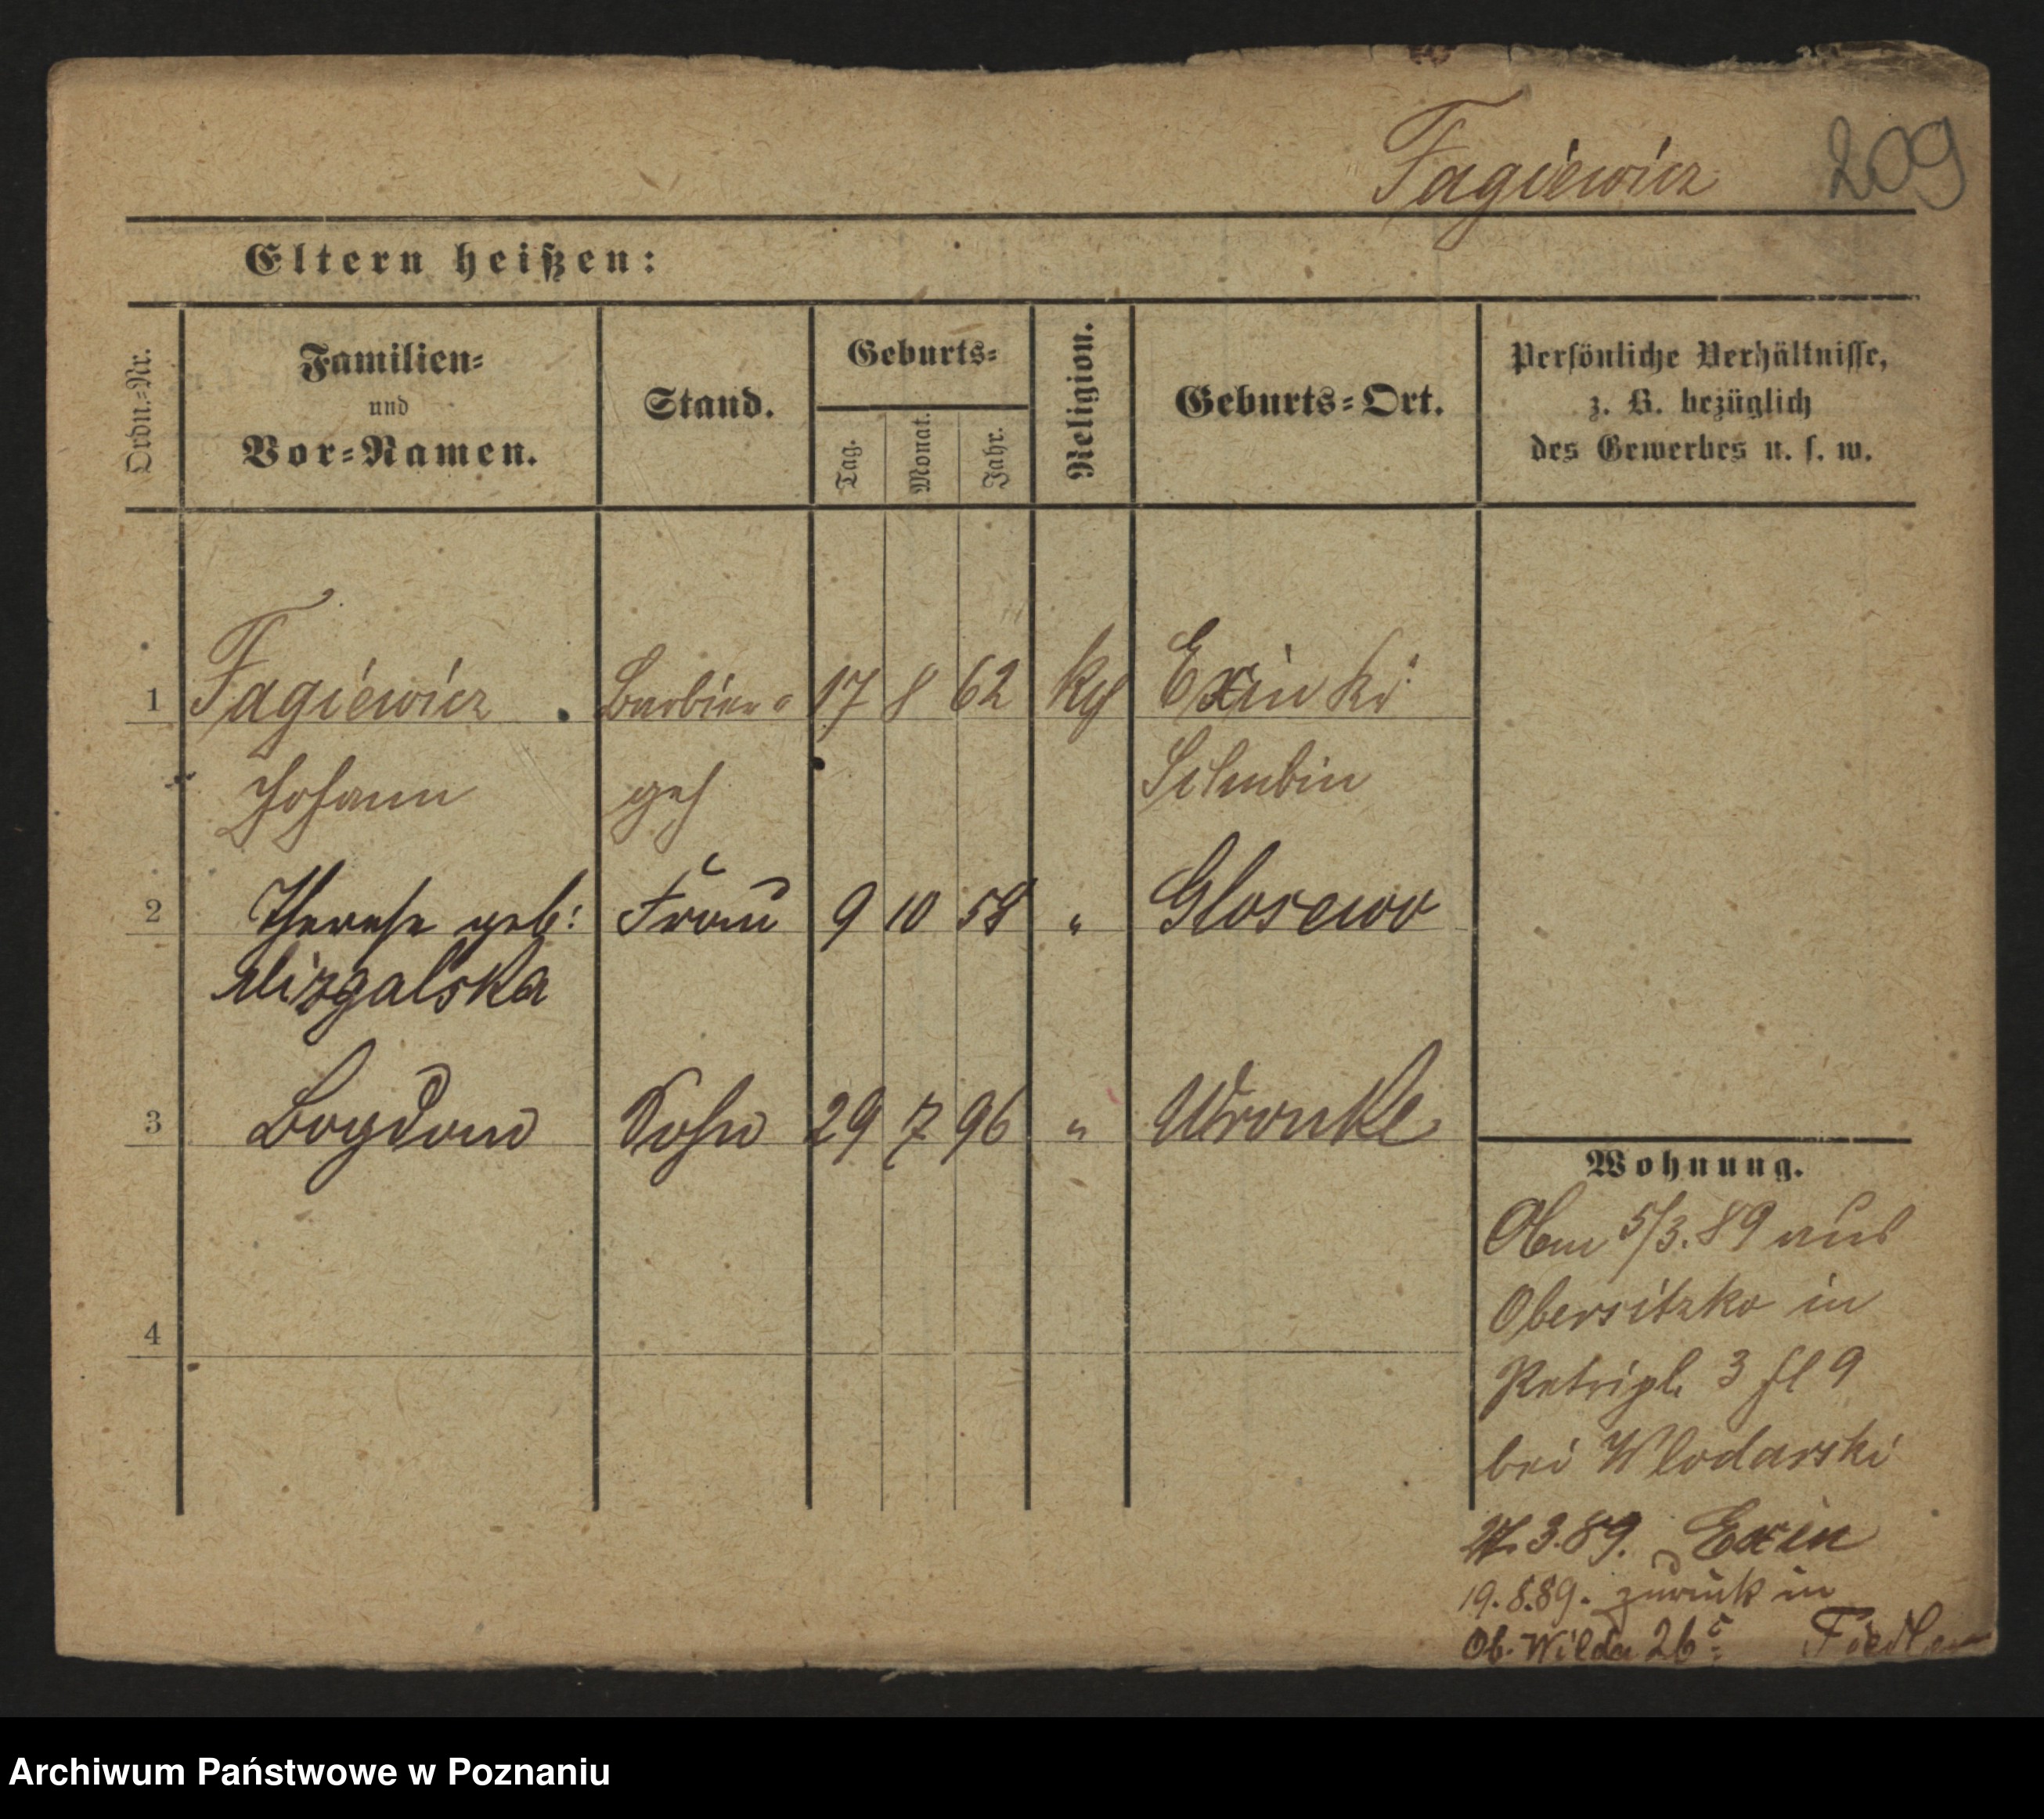 Fagiewicz 209
Eltern heißen:
Ordn.-Nr.
Familien-
und
Vor-Namen.
Stand.
Geburts-
Tag.
Monat.
Jahr.
Religion.
Geburts-Ort.
Persönliche Verhältnisse,
z. B. bezüglich
des Gewerbes u. s. w.
1 Fagiewicz Barbier- 17 8 62 kth Exin Kr
Johann geh Schubin
2 Therese geb: Frau 9 10 58 " Glosewo
Mizgalska
3 Bogdan Sohn 29 7 96 " Wronke
4
Wohnung.
5/3.89 aus
Obersitzko in
Petripl. 3 fl 9
bei Wlodarski
27.3.89. Exin
19.8.89. zurück in
Ob. Wilda 26 Fiedler
Archiwum Państwowe w Poznaniu